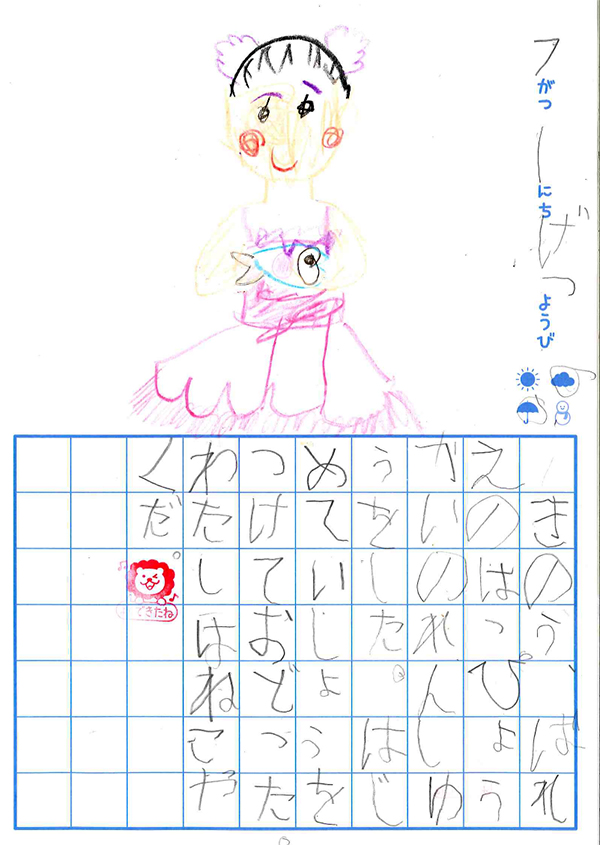 7がつ1にちげつようび
きのう、ばれ
えのはっぴょう
かいのれんしゆ
うをした。はじ
めていしょうを
つけておどった
わたしはねこや
くだ。
できたね